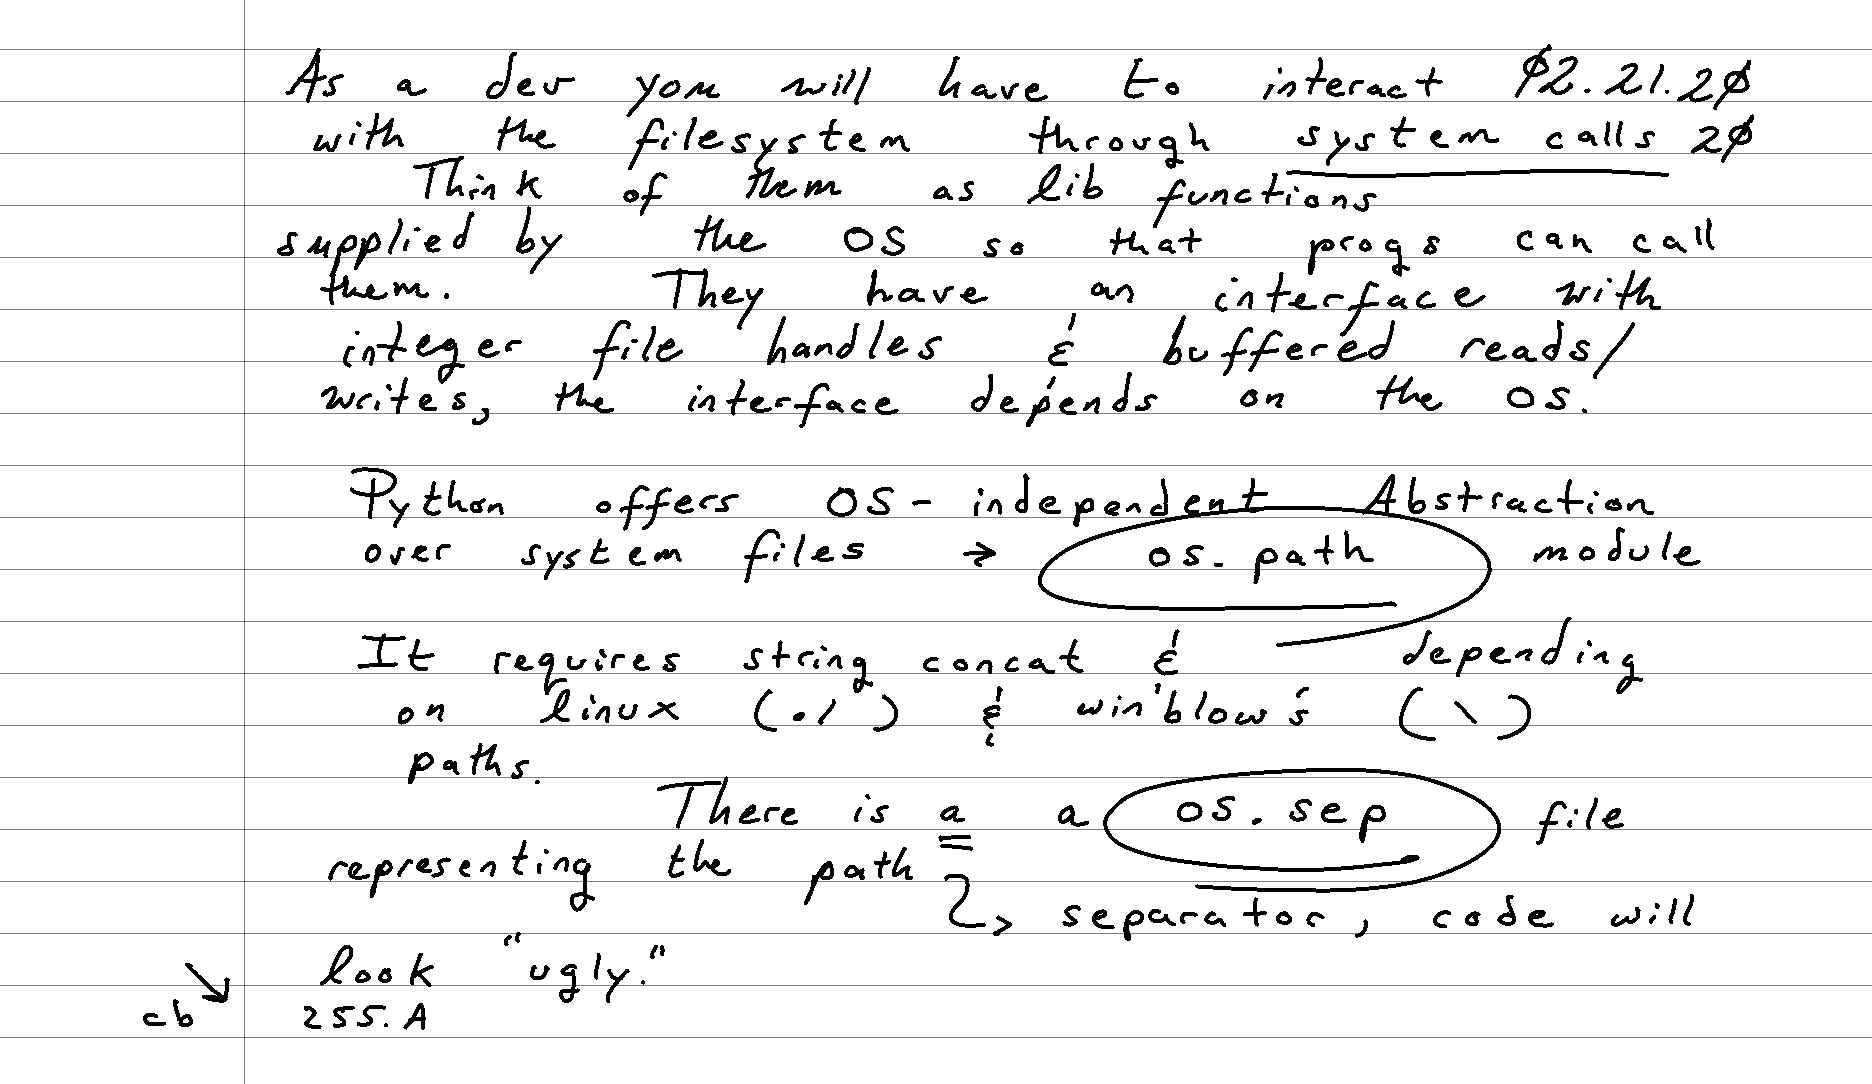 As a dev you will have to interact 02.21.20
with the filesystem through system calls 20
Think of them as lib functions
supplied by the OS so that progs can call
them. They have an interface with
integer file handles & buffered reads/
writes, the interface depends on the OS.
Python offers OS-independent Abstraction
over system files → os.path module
It requires string concat & depending
on linux (./) & win'blow's (\)
paths.
There is a a os.sep file
representing the path
separator, code will
look "ugly."
cb 255.A